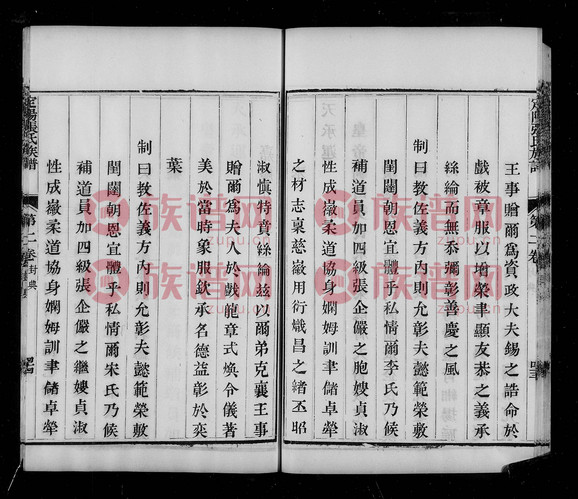 王事贈爾爲資政大夫錫之誥命於
戲被章服以增榮聿顯友恭之義承
絲綸而無忝彌彰善慶之風
制曰教佐義方內則允彰夫懿範榮敷
閨闥朝恩宜體乎私情爾李氏乃候
補道員加四級張企嚴之胞嫂貞淑
性成嶶柔道協身嫻姆訓聿儲卓犖
之材志稟慈徽用衍熾昌之緒丕昭
淑愼特賁絲綸兹以爾弟克襄王事
贈爾爲夫人於戲龍章式煥令儀著
美於當時象服欽承名德益彰於奕
葉
制曰教佐義方內則允彰夫懿範榮敷
閨闥朝恩宜體乎私情爾宋氏乃候
補道員加四級張企嚴之繼嫂貞淑
性成嶶柔道協身嫻姆訓聿儲卓犖
定陽張氏族譜
第二卷
封典
族谱网
zupu.cn